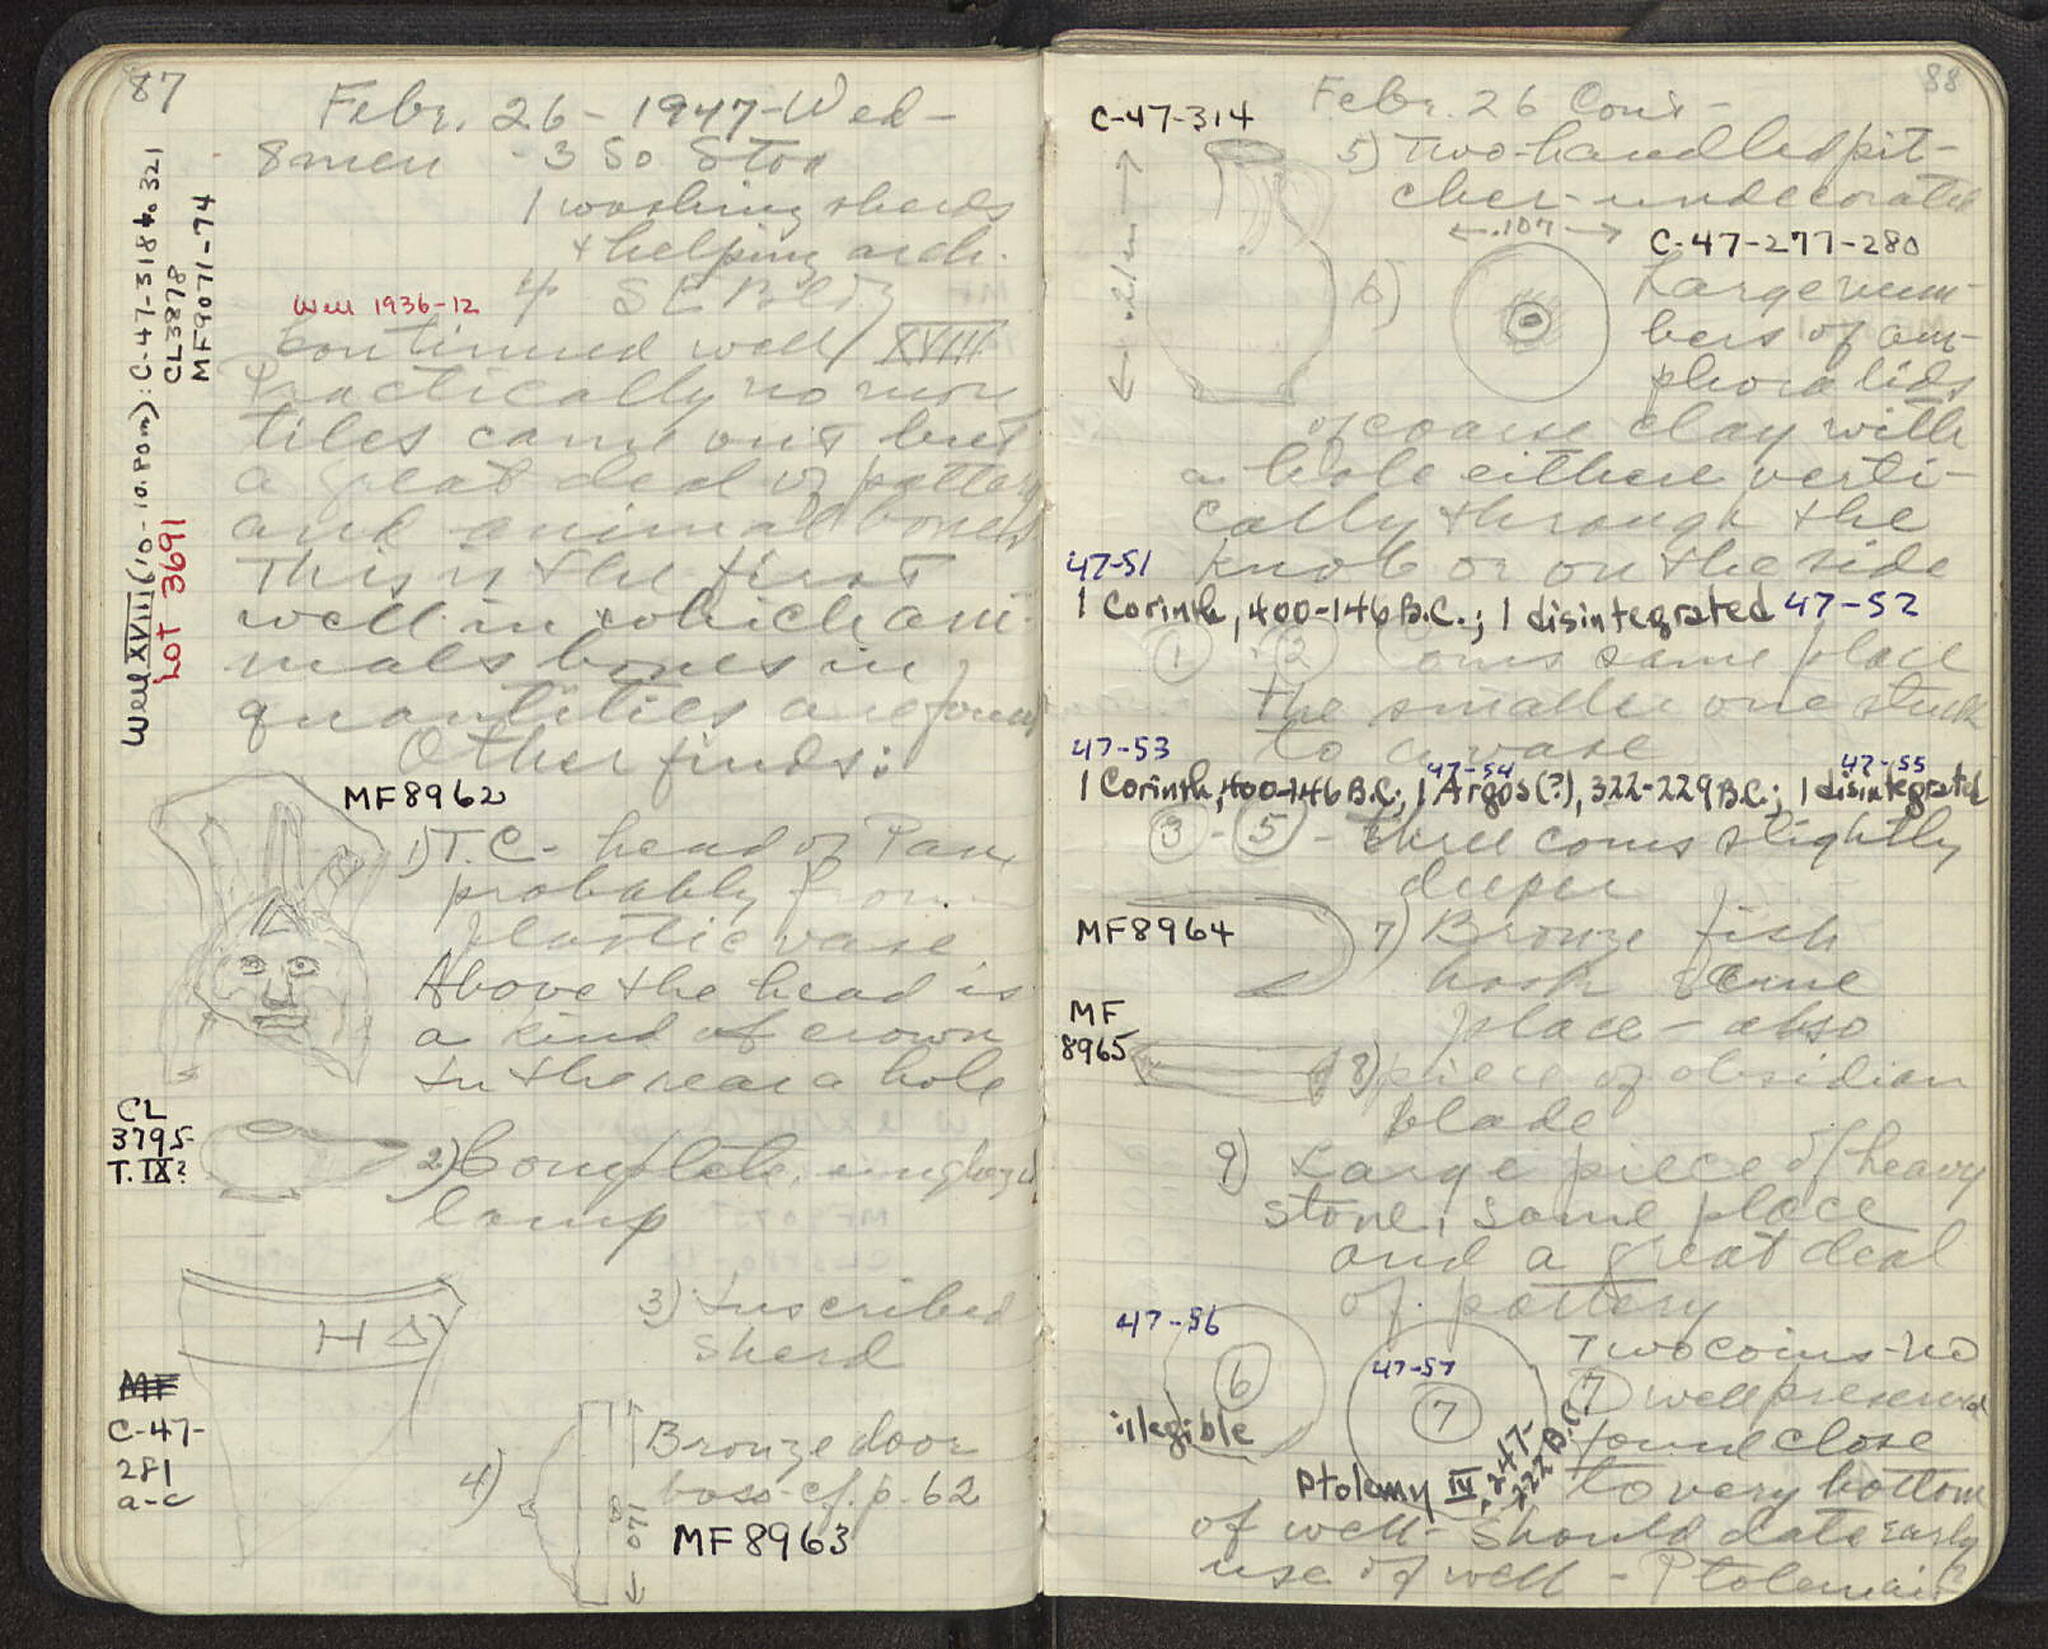 87
Febr. 26 - 1947 - Wed -
8 men - 3 So Stoa
1 washing sherds
+ helping arch.
4 S E Bldg
Well 1936-12
Continued well XVIII
Practically no more
tiles came out but
a great deal of pottery
and animal bones
This is the first
well in which ani-
mals bones in
quantities are found
Other finds:
Well XVIII (10-10.80m): C-47-318 to 321
CL3878
MF9071-74
LOT 3691
MF8962
1) T.C. head of Pan
probably from
plastic vase
Above the head is
a kind of crown
In the rear a hole
CL
3795
T. IX?
2) Complete, unglazed
lamp
H Δ
3) Inscribed
sherd
MF
C-47-
281
a-c
4) Bronze door
boss - cf. p. 62
MF8963
88
Febr. 26 Con't -
C-47-314
5) Two-handled pit-
cher - undecorated
.107
C-47-277-280
6) Large num-
bers of am-
phora lids
of coarse clay with
a hole either verti-
cally through the
knob or on the side
47-51
1 Corinth, 400-146 B.C.; 1 disintegrated 47-52
1 - 2 Coins same place
the smaller one stuck
to a vase
47-53 47-54 47-55
1 Corinth, 400-146 B.C.; 1 Argos(?), 322-229 B.C.; 1 disintegrated
3 - 5 - three coins slightly
deeper
MF8964
7) Bronze fish
hook same
place - also
MF
8965
8) piece of obsidian
blade
9) Large piece of heavy
stone, same place
and a great deal
of pottery
47-56
6
illegible
47-57
7
Ptolemy IV, 247-
222 B.C.
Two coins - no
7 well preserved
found close
to very bottom
of well - should date early
use of well - Ptolemaic